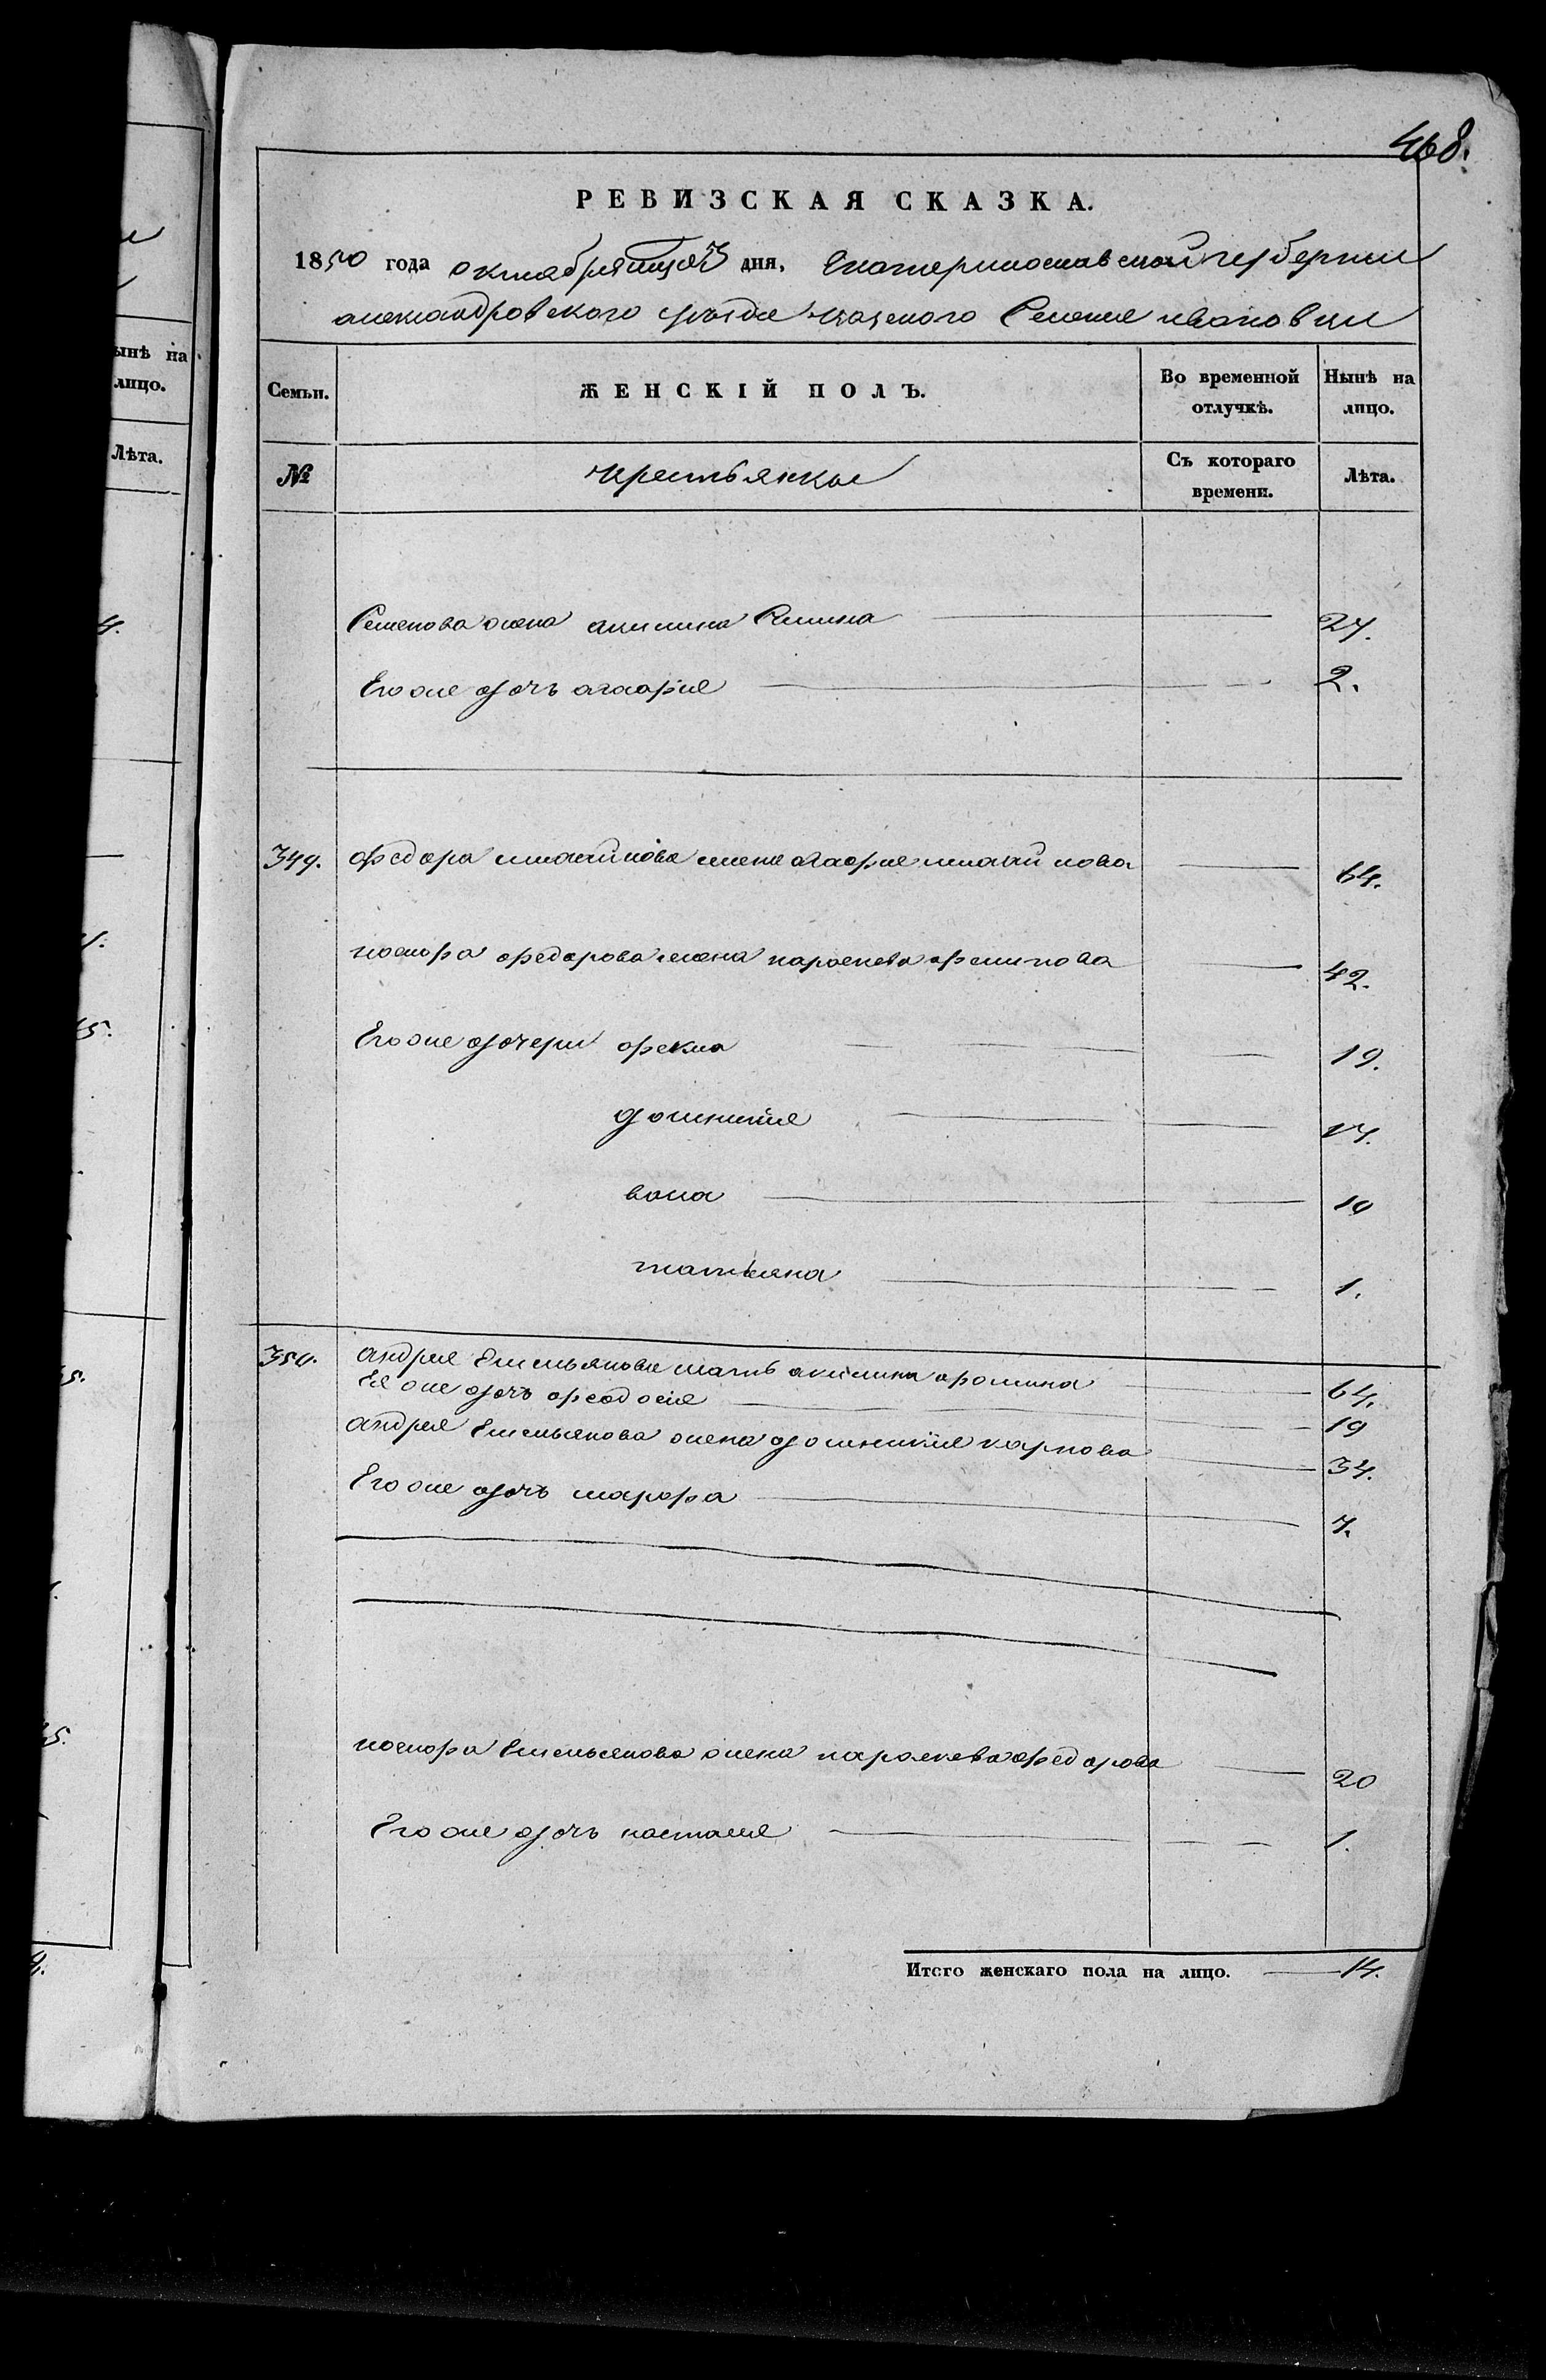 468.
РЕВИЗСКАЯ СКАЗКА.
1850 года октября дня, Екатеринославской губернии
александровского уезда казеного Селения ивановки
Семьи. ЖЕНСКІЙ ПОЛЪ. Во временной отлучкѣ. Нынѣ на лицо.
№ крестьянки Съ котораго времени. Лѣта.
Семенова жена акилина 27.
Его же дочь агафия 2.
349. федора михайлова жена агафия михайлова 64.
федорова жена парасковя филипова 42.
Его же дочери фекла 19.
домникия 17.
васа 10
татияна 1.
350. андрея Емельянова мать акилина фомина 64.
Ея же дочь феодосия 19
андрея Емельянова жена домникия карпова 34.
Его же дочь марфа 7.
Емельянова жена парасковя федорова 20
Его же дочь настасия 1.
Итого женскаго пола на лицо. 14.
ынѣ на
лицо.
Лѣта.